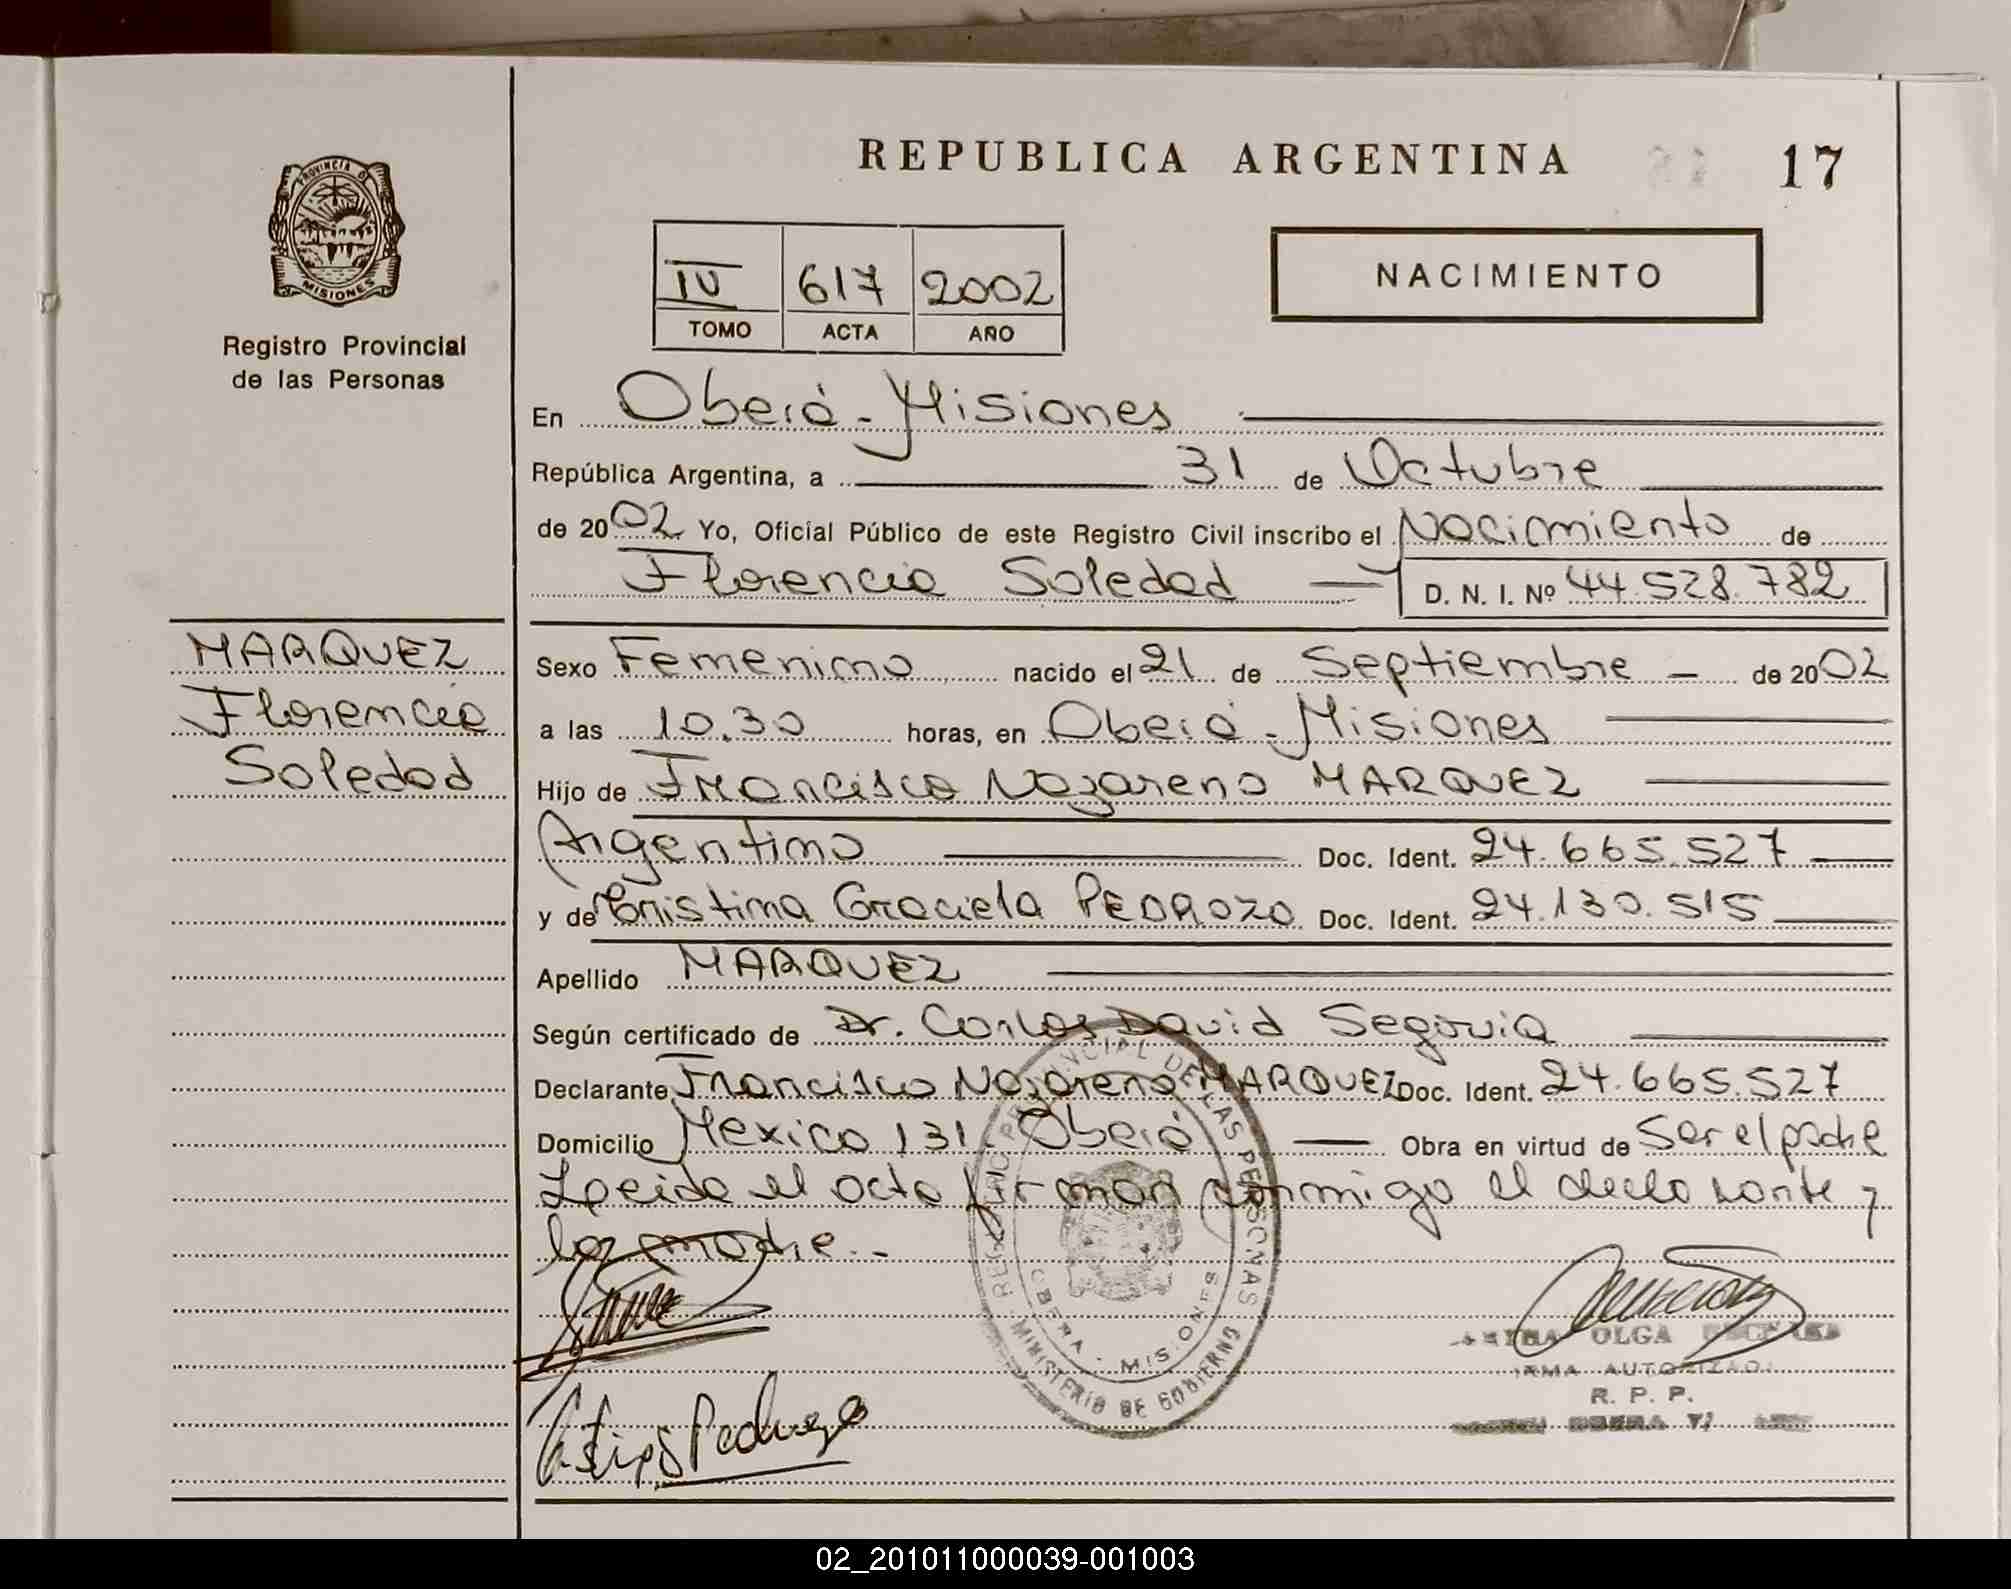 REPUBLICA ARGENTINA 17
PROVINCIA DE
MISIONES
Registro Provincial
de las Personas
IV 617 2002
TOMO ACTA AÑO
NACIMIENTO
En Oberá - Misiones
República Argentina, a 31 de Octubre
de 2002 Yo, Oficial Público de este Registro Civil inscribo el Nacimiento de
Florencia Soledad D. N. I. Nº 44.528.782
MARQUEZ
Florencia
Soledad
Sexo Femenino nacido el 21 de Septiembre - de 2002
a las 10.30 horas, en Oberá - Misiones
Hijo de Francisco Nazareno MARQUEZ
Argentino Doc. Ident. 24.665.527
y de Cristina Graciela PEDROZO Doc. Ident. 24.130.515
Apellido MARQUEZ
Según certificado de Dr. Carlos David Segovia
Declarante Francisco Nazareno MARQUEZ Doc. Ident. 24.665.527
Domicilio Mexico 131. Oberá Obra en virtud de Ser el padre
Leida el acta firman conmigo el declarante y
la madre.-
REGISTRO PROVINCIAL DE LAS PERSONAS
OBERA - MISIONES
MINISTERIO DE GOBIERNO
OLGA
FIRMA AUTORIZADA
R. P. P.
02_201011000039-001003